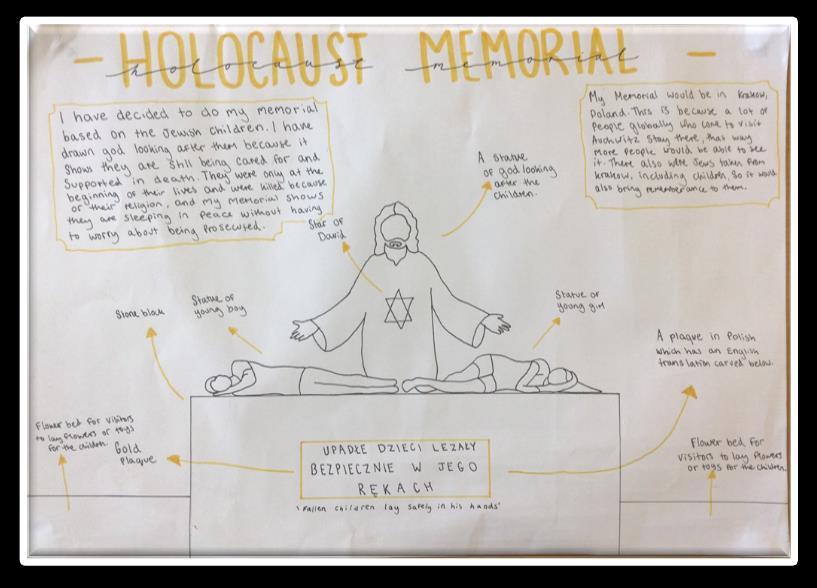 - HOLOCAUST MEMORIAL -
holocaust memorial
I have decided to do my memorial
based on the Jewish children. I have
drawn god looking after them because it
shows they are still being cared for and
supported in death. They were only at the
beginning of their lives and were killed because
of their religion, and my memorial shows
they are sleeping in peace without having
to worry about being prosecuted.
My Memorial would be in Krakow,
Poland. This is because a lot of
people globally who come to visit
Auchwitz stay there, that way
more people would be able to see
it. There also were Jews taken from
Krakow, including children, so it would
also bring rememberance to them.
A statue
of god looking
after the
children.
Star of
David
Stone block
Statue of
young boy
Statue of
young girl
A plaque in Polish
which has an English
translation carved below.
Flower bed for visitors
to lay flowers or toys
for the children.
Gold
Plaque
Flower bed for
visitors to lay flowers
or toys for the children.
UPADŁE DZIECI LEŻAŁY
BEZPIECZNIE W JEGO
RĘKACH
'Fallen children lay safely in his hands'